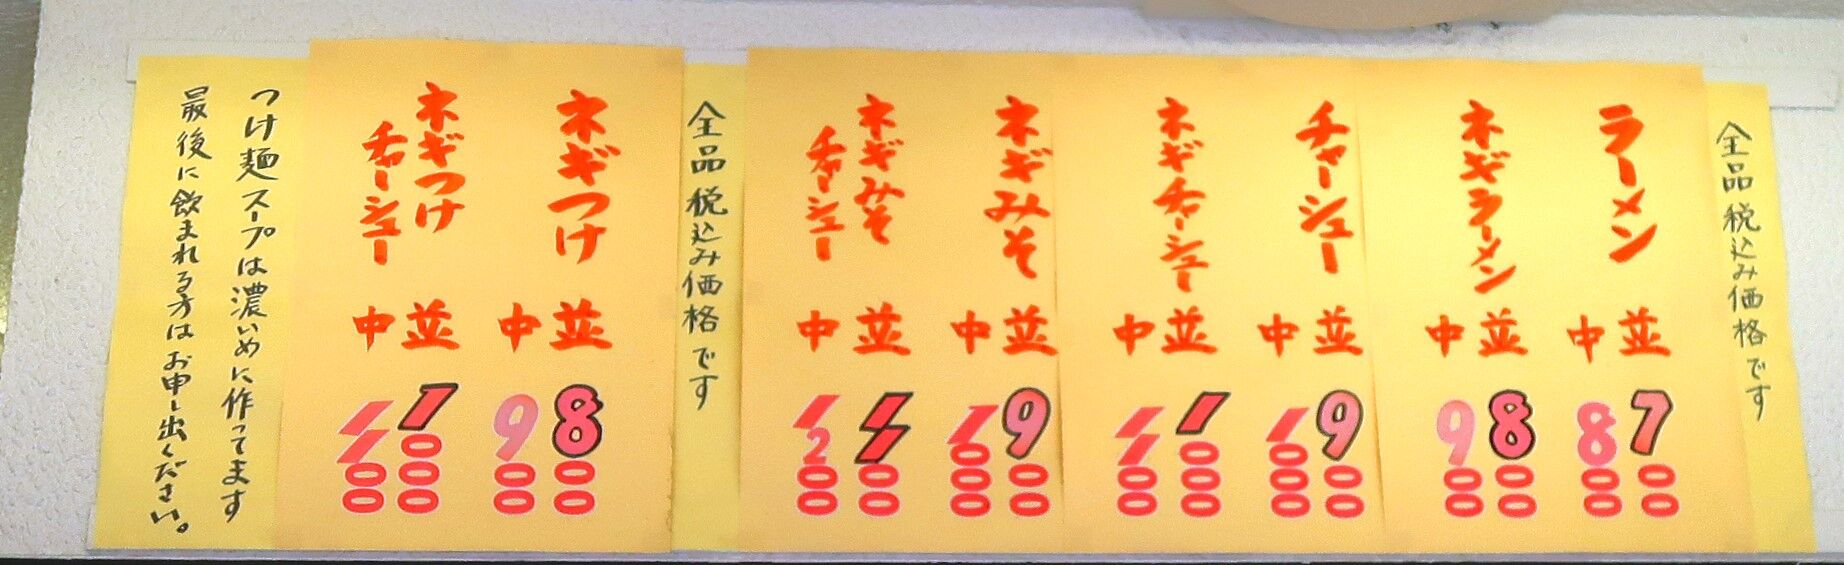 全品税込み価格です
ラーメン
並 700
中 800
ネギラーメン
並 800
中 900
チャーシュー
並 900
中 1000
ネギチャーシュー
並 1000
中 1100
ネギみそ
並 900
中 1000
ネギみそ
チャーシュー
並 1100
中 1200
全品税込み価格です
ネギつけ
並 800
中 900
ネギつけ
チャーシュー
並 1000
中 1100
つけ麺スープは濃いめに作ってます
最後に飲まれる方はお申し出ください。